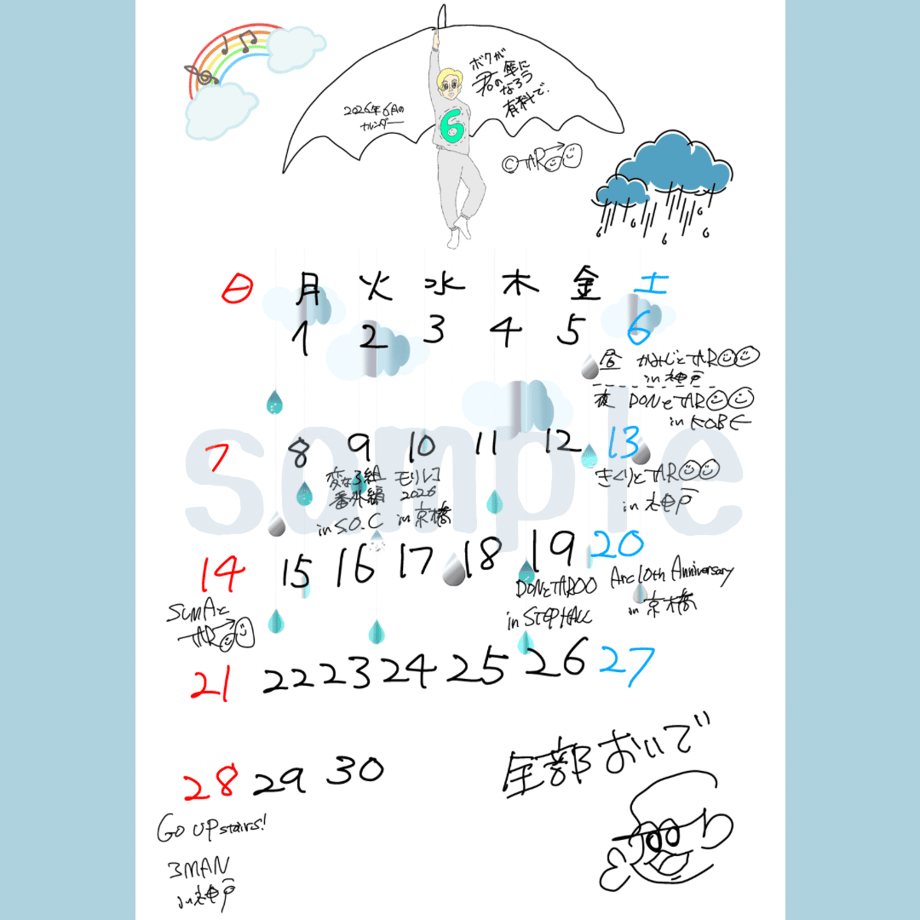 2026年6月の
カレンダー
ボクが
君の傘に
なろう
有料で.
6
©TAROO
日 月 火 水 木 金 土
1 2 3 4 5 6
昼 かみじとTAROO
in 神戸
夜 DONとTAROO
in KOBE
sample
7 8 9 10 11 12 13
変な3組
番外編
in S.O.C
モリレコ
2026
in 京橋
きくりとTAROO
in 神戸
14 15 16 17 18 19 20
SUMAと
TAROO
DONとTAROO
in STEP HALL
Arc 10th Anniversary
in 京橋
21 22 23 24 25 26 27
28 29 30
Go UPstairs!
3MAN
in 神戸
全部おいで